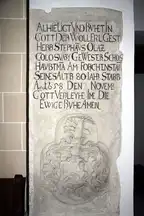 ALHIE LIGT VND RVHET IN
GOTT DER WOLL EDL GEST
HERR STEPHAN OLAZ
GEWESTER SCHOS
HAVBTMA AM TORCHENSTAI
SEINES ALTR 80 IAHR STARB
A 16 8 DEN NOVEMB
GOTT VERLEYHE IM DIE
EWIGE RVHE AMEN